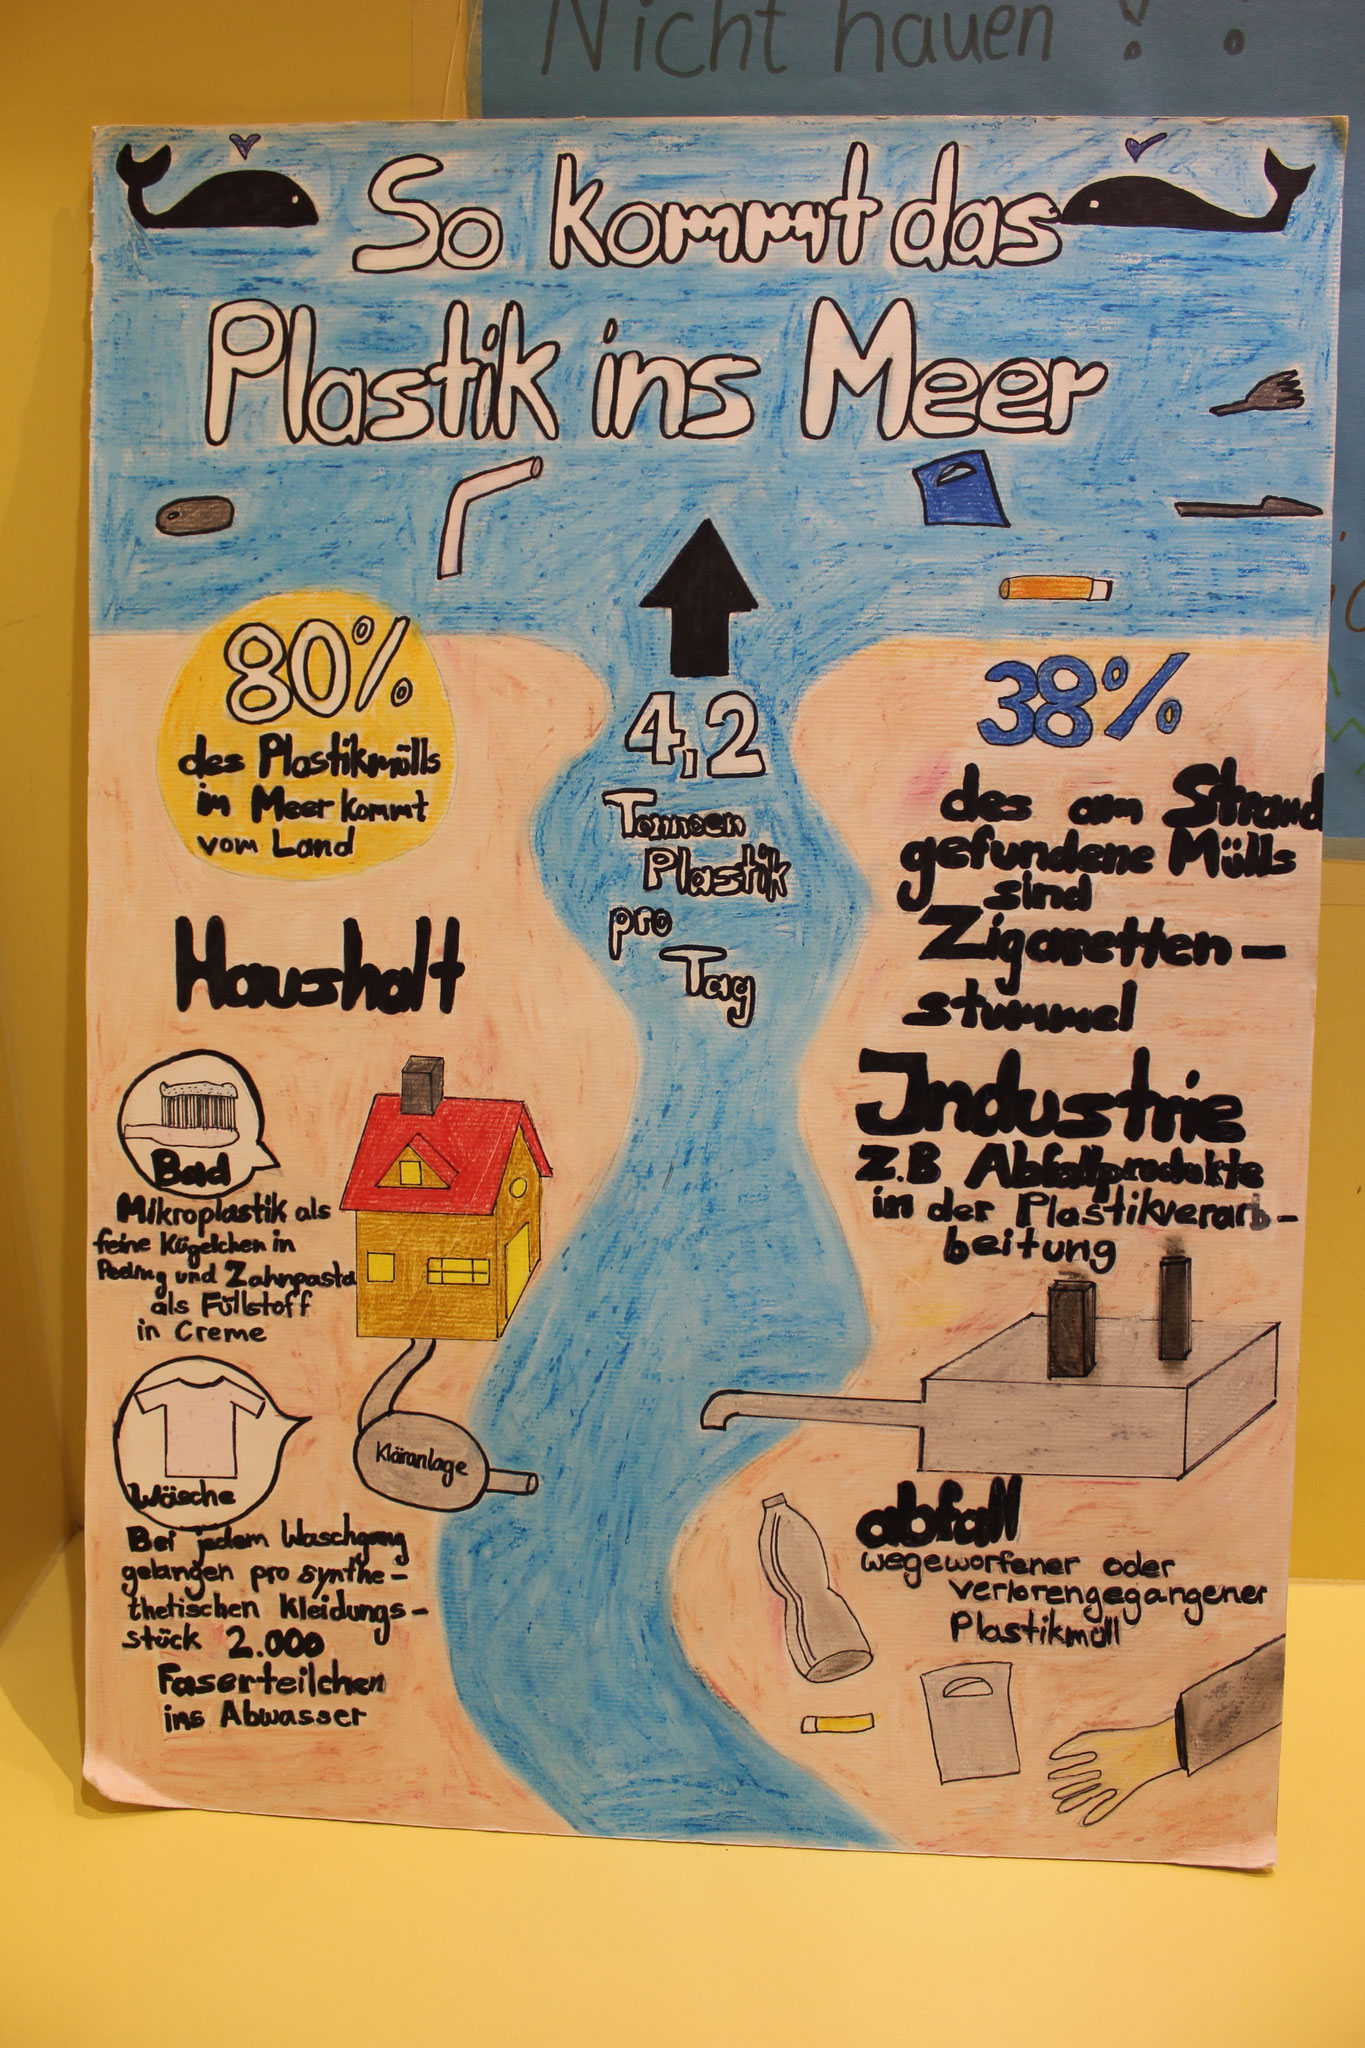 Nicht hauen !
So kommt das
Plastik ins Meer
80%
des Plastikmülls
im Meer kommt
vom Land
4,2
Tonnen
Plastik
pro
Tag
38%
des am Strand
gefundene Mülls
sind
Zigaretten-
stummel
Haushalt
Bad
Mikroplastik als
feine Kügelchen in
Peeling und Zahnpasta
als Füllstoff
in Creme
Wäsche
Bei jedem Waschgang
gelangen pro synthe-
thetischen Kleidungs-
stück 2.000
Faserteilchen
ins Abwasser
Kläranlage
Industrie
z.B Abfallprodukte
in der Plastikverarb-
beitung
abfall
wegeworfener oder
verlorengegangener
Plastikmüll